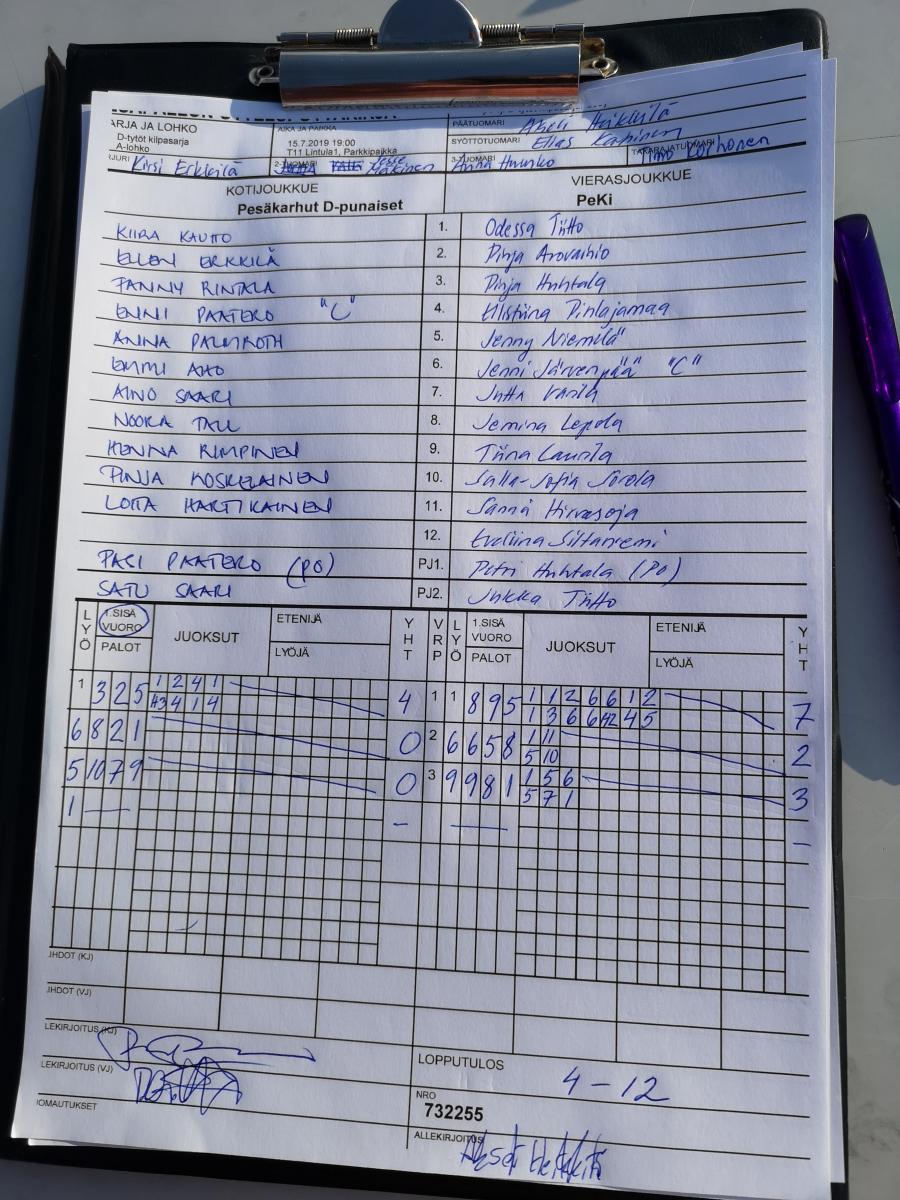 ARJA JA LOHKO
D-tytöt kilpasarja
A-lohko
AIKA JA PAIKKA
15.7.2019 19:00
T11 Lintula1, Parkkipaikka
PÄÄTUOMARI
SYÖTTÖTUOMARI Elias
TAKARAJATUOMARI
Kirsi Erkkilä
2-TUOMARI Jesse Mäkinen
3-TUOMARI Anna Hnunko
KOTIJOUKKUE VIERASJOUKKUE
Pesäkarhut D-punaiset PeKi
KIIRA KAUTTO 1. Odessa Tiitto
ELLEN ERKKILÄ 2. Pinja Arovaihio
FANNY RINTALA 3. Pinja Huhtala
ENNI PAATERO "C" 4. Ellistiina Pihlajamaa
ANNA PALMROTH 5. Jenny Niemilä
EMMI AHO 6. Jenni Järvenpää "C"
AINO SAARI 7. Jutta
NOORA 8. Jemina Lepola
HENNA RIMPINEN 9. Tiina Laurila
PINJA KOSKELAINEN 10. Salla-Sofia Sorola
LOTTA HARTIKAINEN 11. Sanna Hirvasoja
12. Eveliina Siltaniemi
PASI PAATERO (PO) PJ1. Petri Huhtala (PO)
SATU SAARI PJ2. Jukka Tiitto
LYÖ 1.SISÄ VUORO PALOT JUOKSUT ETENIJÄ LYÖJÄ YHT VRP LYÖ 1.SISÄ VUORO PALOT JUOKSUT ETENIJÄ LYÖJÄ YHT
1 3 2 5 1 2 4 1 4 1 1 8 9 5 1 1 2 6 6 1 2 7
H3 4 1 4 1 3 6 6 H2 4 5
6 8 2 1 0 2 6 6 5 8 1 11 2
5 10
5 10 7 9 0 3 9 9 8 1 1 5 6 3
5 7 1
1 — – — –
HDOT (KJ)
HDOT (VJ)
LEKIRJOITUS (KJ)
LEKIRJOITUS (VJ)
OMAUTUKSET
LOPPUTULOS 4 – 12
NRO
732255
ALLEKIRJOITUS